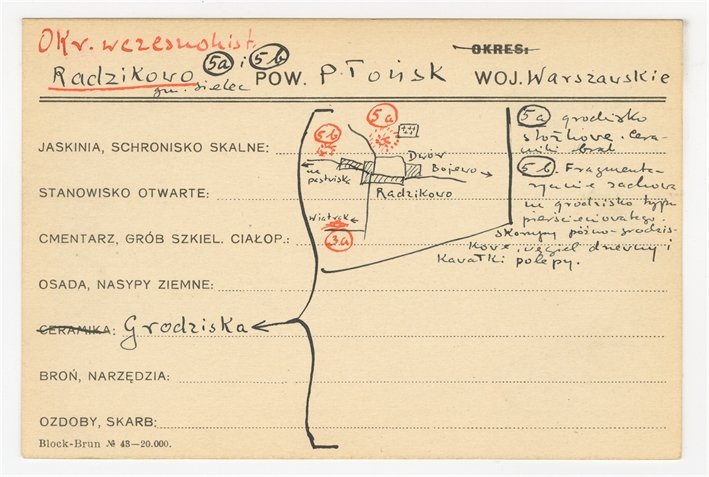 OKr. wczesnohist.
OKRES:
Radzikowo 5a i 5b POW. Płońsk WOJ. Warszawskie
gm. Sielec
JASKINIA, SCHRONISKO SKALNE:
STANOWISKO OTWARTE:
CMENTARZ, GRÓB SZKIEL. CIAŁOP.:
OSADA, NASYPY ZIEMNE:
CERAMIKA: Grodziska
BROŃ, NARZĘDZIA:
OZDOBY, SKARB:
Block-Brun № 43—20.000.
5b
5a
Dwór
na
pastwiska
Bojewo
Radzikowo
Wiatrak
3a
5a grodzisko
stożkowe. Cera-
miki brak
5b. Fragmenta-
rycznie zachowa
ne grodzisko typu
pierścieniowatego.
skorupy późno-grodzis-
kowe. węgiel drzewny i
Kawałki polepy.